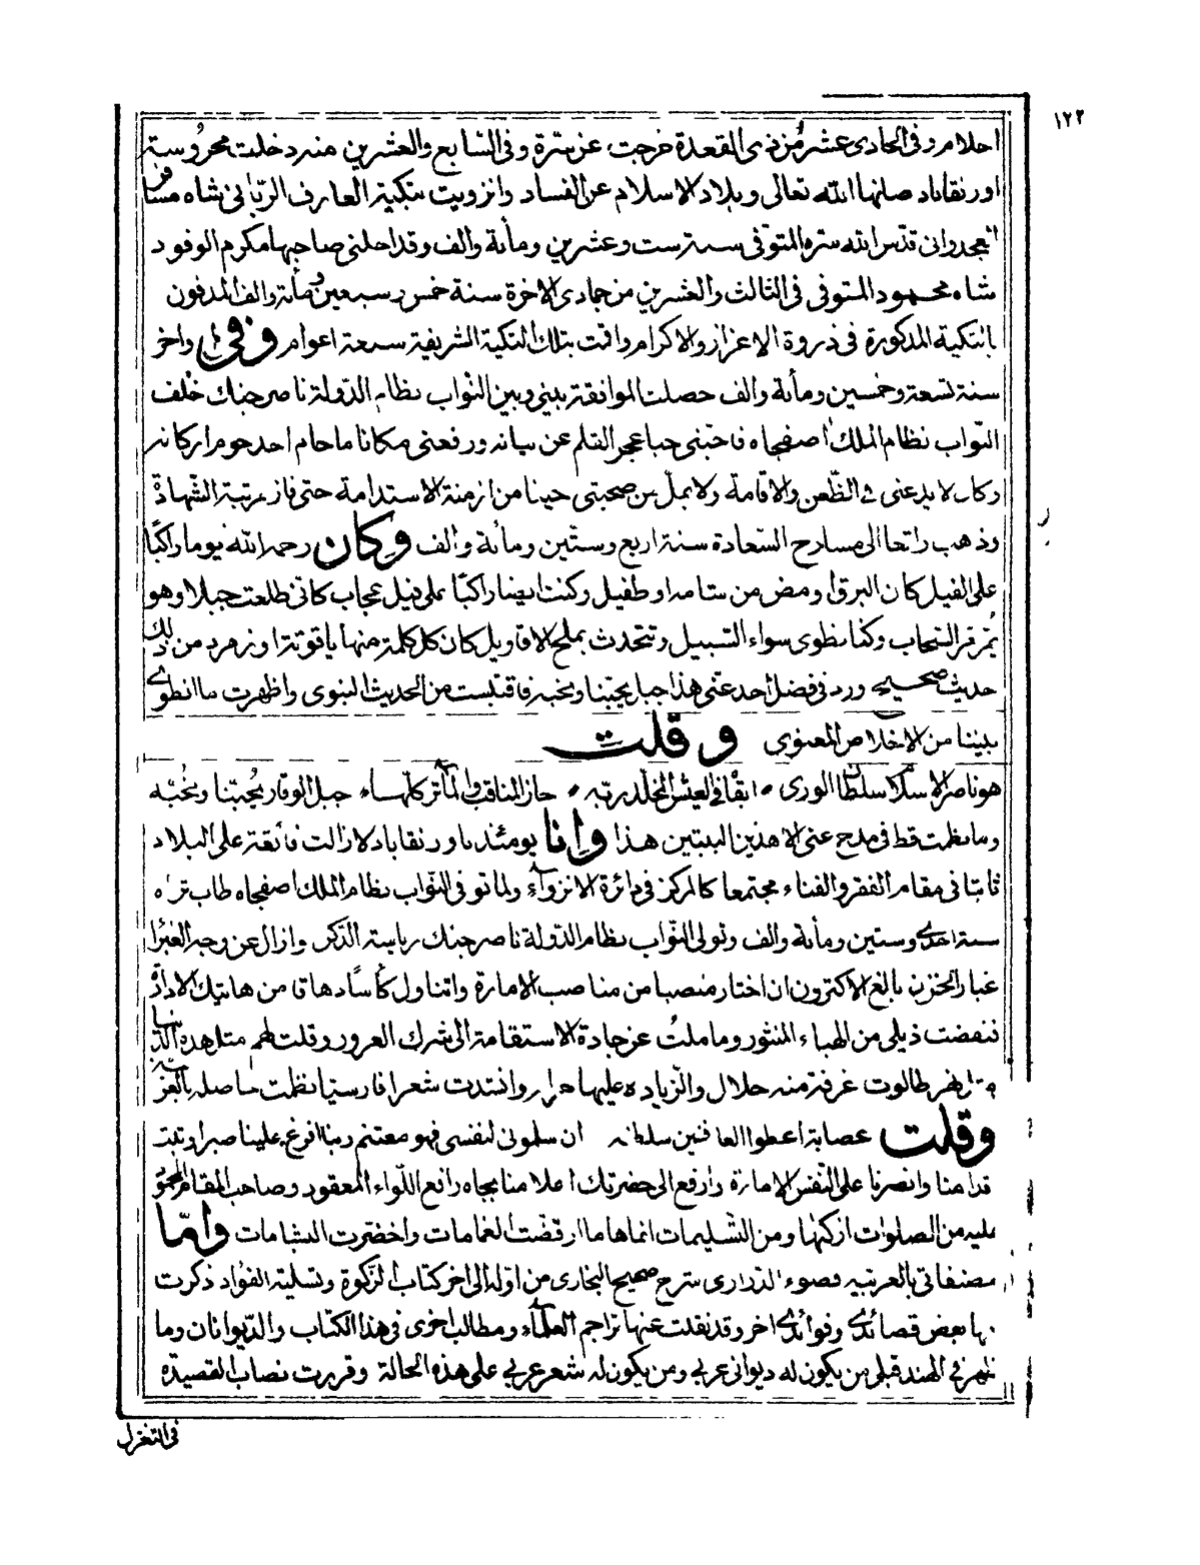 ١٢٢
احلام وفى الحادى عشر من ذى القعدة خرجت عن سترة وفى السابع والعشرين منه دخلت محروسة
اورنقاباد صانها الله تعالى وبلاد الاسلام عن الفساد وانزويت بتكية العارف الربانى شاه مسافر
الغجدوانى قدس الله سره المتوفى سنة ست وعشرين ومأية والف وقد احلنى صاحبها مكرم الوفود
شاه محمود المتوفى فى الثالث والعشرين من جمادى الاخرة سنة خمس وسبعين ومأية والف المدفون
بالتكية المذكورة فى ذروة الاعزاز والاكرام واقمت بتلك التكية الشريفة سبعة اعوام وفى اواخر
سنة تسعة وخمسين ومأية والف حصلت الموافقة بينى وبين النواب نظام الدولة ناصر جنك خلف
النواب نظام الملك اصفجاه فاحبنى حبا عجز القلم عن بيانه ورفعنى مكانا ما حام احد حوم اركانه
وكان لا يدعنى فى الظعن والاقامة ولا يمل من صحبتى حينا من ازمنة الاستدامة حتى فاز بمرتبة الشهادة
وذهب راتعا الى مسارح السعادة سنة اربع وستين ومأية والف وكان رحمه الله يوما راكبا
على الفيل كان البرق اومض من شامة او طفيل وكنت ايضا راكبا على فيل عجاب كانى طلعت جبلا وهو
يمر مر السحاب وكنا نطوى سواء السبيل ونتحدث بملح الاقاويل كان كل كلمة منها ياقوتة او زمرد من ذلك
حديث صحيح ورد فى فضل احد عنى هذا جبل يحبنا ونحبه فاقتبست من الحديث النبوى واظهرت ما انطوى
بيننا من الاخلاص المعنوى وقلت
هو ناصر الاسلام سلطان الورى • ابقاه فى العيش المخلد ربه • حاز المناقب والمآثر كلها • جبل الوقار يحبنا ونحبه
وما نظمت قط فى مدح غنى الا هذين البيتين هذا وانا يومئذ باورنقاباد لازالت فائقة على البلاد
ثابتا فى مقام الفقر والفناء مجتمعا كالمركز فى دائرة الانزواء ولما توفى النواب نظام الملك اصفجاه طاب ثراه
سنة احدى وستين ومأية والف وتولى النواب نظام الدولة ناصر جنك رياسة الدكن وازال عن وجه الغبرا
غبار الحزن بالغ الاكثرون ان اختار منصبا من مناصب الامارة واتناول كأسا دهاقا من هاتيك الادارة
فنفضت ذيلى من الهباء المنثور وما ملت عن جادة الاستقامة الى شرك الغرور وقلت لهم مثل هذه الدنيا
مثل نهر طالوت غرفة منه حلال والزيادة عليها حرام وانشدت شعرا فارسيا نظمت حاصله بالعربية
وقلت عصابة اعطوا العافين سلطانه ان سلمونى لنفسى فهو مغتنم ربنا افرغ علينا صبرا وثبت
قدامنا وانصرنا على النفس الامارة وارفع الى حضرتك اعلامنا بجاه رافع اللواء المعقود وصاحب المقام المحمود
عليه من الصلوات ازكيها ومن التسليمات انماها ما ارفضت الغمامات واخضرت البشامات واما
مصنفاتى بالعربية فضوء الدرارى شرح صحيح البخارى من اوله الى اخر كتاب الزكوة وتسلية الفؤاد ذكرت
بها بعض قصائدى وفوائدى اخر وقد نقلت عنها تراجم العلماء ومطالب اخرى فى هذا الكتاب والديوانان وما
ظهر فى الهند قبلى من يكون له ديوانى عربى ومن يكون له شعر عربى على هذه الحالة وقررت نصاب القصيدة
فى التغزل